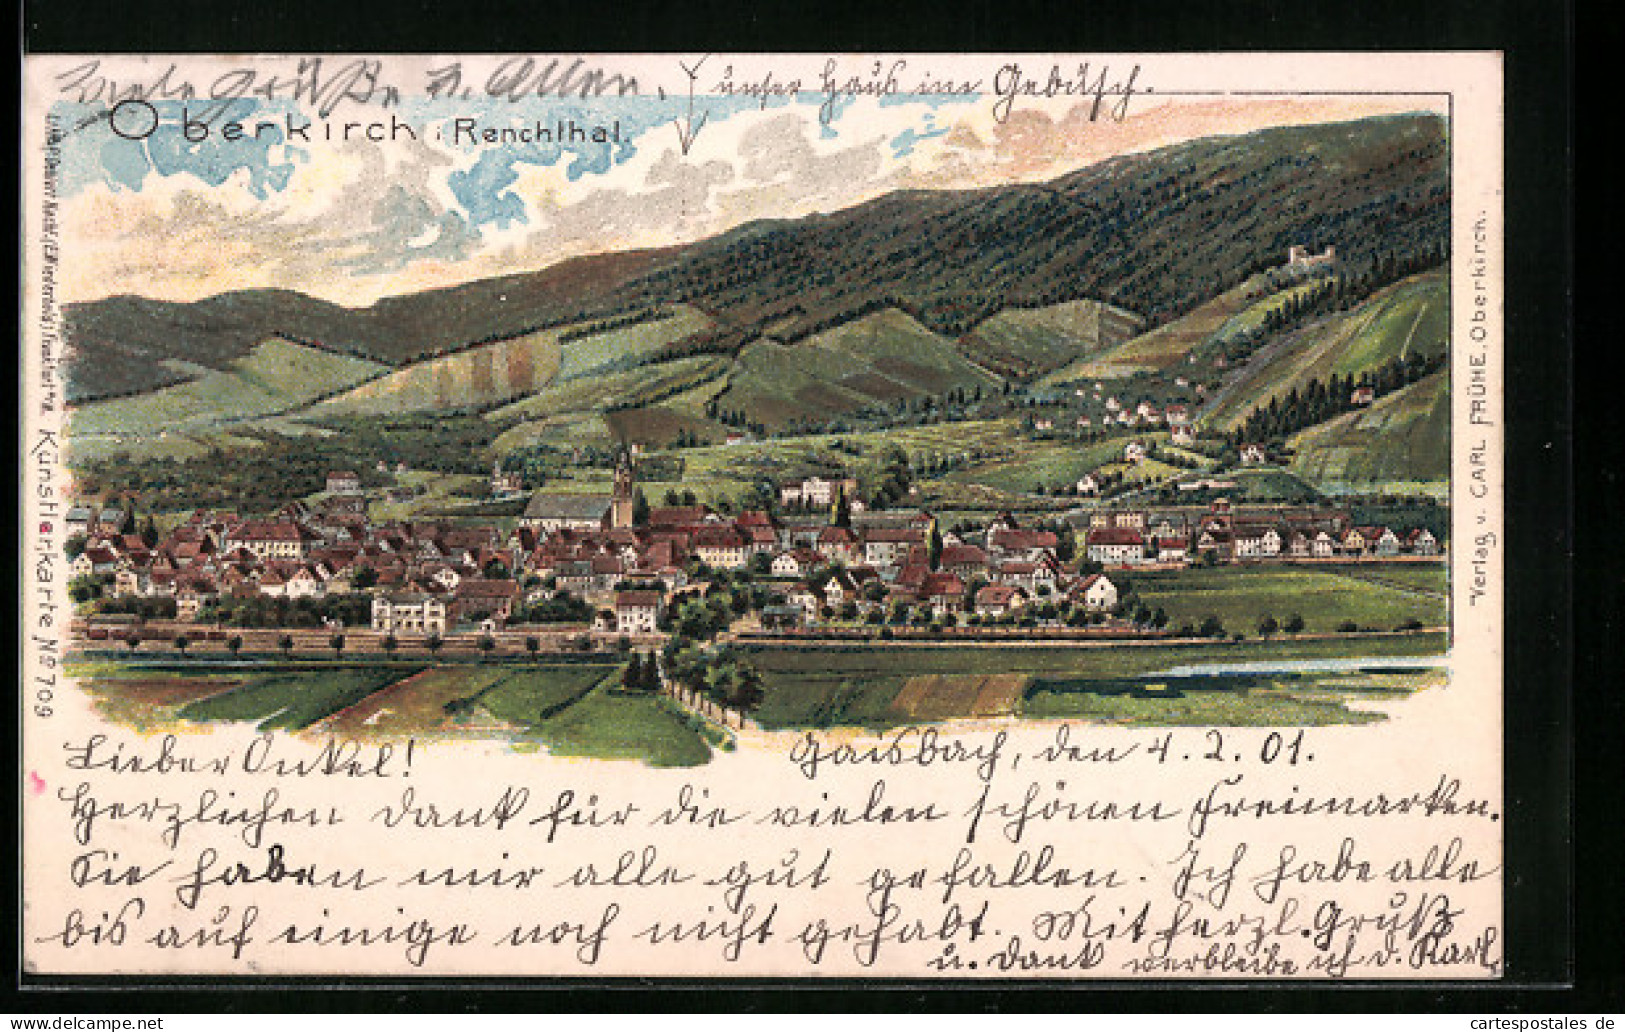 Viele Grüße v. Allen.
unser Haus im Gebüsch.
Oberkirch i Renchthal.
Künstlerkarte Nº 709
Verlag v. CARL FRÜHE, Oberkirch.
Gaisbach, den 4. 2. 01.
Lieber Onkel!
Herzlichen Dank für die vielen schönen Freimarken.
Sie haben mir alle gut gefallen. Ich habe alle
bis auf einige noch nicht gehabt. Mit herzl. Gruß
u. Dank verbleibe ich d. Karl.
cartespostales de